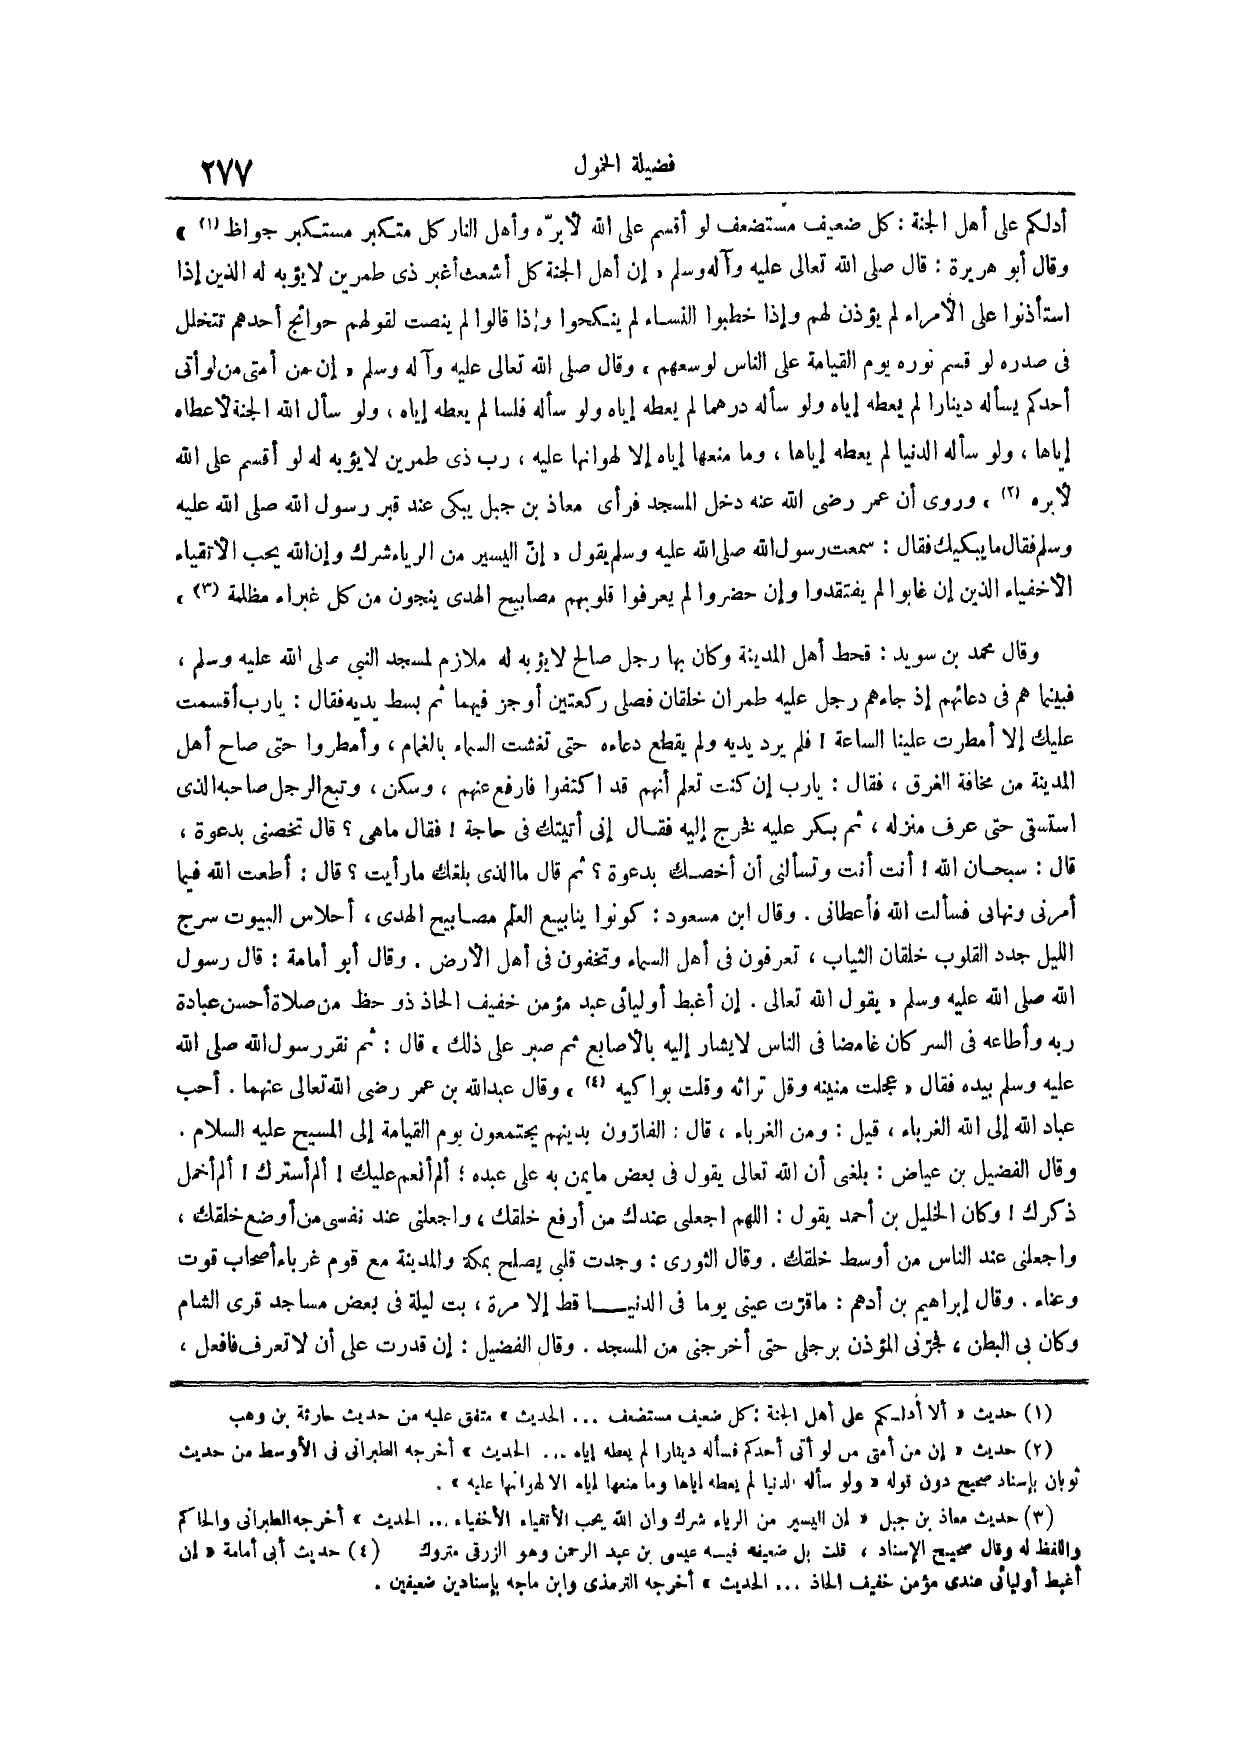 فضيلة الخمول
٢٧٧
أدلكم على أهل الجنة : كل ضعيف مستضعف لو أقسم على الله لأبرّه وأهل النار كل متكبر مستكبر جواظ (١) »
وقال أبو هريرة : قال صلى الله تعالى عليه وآله وسلم « إن أهل الجنة كل أشعث أغبر ذى طمرين لايؤبه له الذين إذا
استأذنوا على الأمراء لم يؤذن لهم وإذا خطبوا النساء لم ينكحوا وإذا قالوا لم ينصت لقولهم حوائج أحدهم تتخلل
فى صدره لو قسم نوره يوم القيامة على الناس لوسعهم » وقال صلى الله تعالى عليه وآله وسلم « إن من أمتى من لو أتى
أحدكم يسأله دينارا لم يعطه إياه ولو سأله درهما لم يعطه إياه ولو سأله فلسا لم يعطه إياه ، ولو سأل الله الجنة لأعطاه
إياها ، ولو سأله الدنيا لم يعطه إياها ، وما منعها إياه إلا لهوانها عليه ، رب ذى طمرين لايؤبه له لو أقسم على الله
لأبره (٢) » وروى أن عمر رضى الله عنه دخل المسجد فرأى معاذ بن جبل يبكى عند قبر رسول الله صلى الله عليه
وسلم فقال ما يبكيك فقال : سمعت رسول الله صلى الله عليه وسلم يقول « إنّ اليسير من الرياء شرك وإن الله يحب الأتقياء
الأخفياء الذين إن غابوا لم يفتقدوا وإن حضروا لم يعرفوا قلوبهم مصابيح الهدى ينجون من كل غبراء مظلمة (٣) »
وقال محمد بن سويد : قحط أهل المدينة وكان بها رجل صالح لايؤبه له ملازم لمسجد النبى صلى الله عليه وسلم ،
فبينما هم فى دعائهم إذ جاءهم رجل عليه طمران خلقان فصلى ركعتين أوجز فيهما ثم بسط يديه فقال : يارب أقسمت
عليك إلا أمطرت علينا الساعة ! فلم يرد يديه ولم يقطع دعاءه حتى تغشت السماء بالغمام ، وأمطروا حتى صاح أهل
المدينة من مخافة الغرق ، فقال : يارب إن كنت تعلم أنهم قد اكتفوا فارفع عنهم ، وسكن ، وتبع الرجل صاحبه الذى
استسقى حتى عرف منزله ، ثم بكر عليه فخرج إليه فقال إنى أتيتك فى حاجة ! فقال ماهى ؟ قال تخصنى بدعوة ،
قال : سبحان الله ! أنت أنت وتسألنى أن أخصك بدعوة ؟ ثم قال ما الذى بلغك مارأيت ؟ قال : أطعت الله فيما
أمرنى ونهانى فسألت الله فأعطانى . وقال ابن مسعود : كونوا ينابيع العلم مصابيح الهدى ، أحلاس البيوت سرج
الليل جدد القلوب خلقان الثياب ، تعرفون فى أهل السماء وتخفون فى أهل الأرض . وقال أبو أمامة : قال رسول
الله صلى الله عليه وسلم « يقول الله تعالى . إن أغبط أوليائى عبد مؤمن خفيف الحاذ ذو حظ من صلاة أحسن عبادة
ربه وأطاعه فى السر كان غامضا فى الناس لايشار إليه بالأصابع ثم صبر على ذلك » قال : ثم نقر رسول الله صلى الله
عليه وسلم بيده فقال « عجلت منيته وقل تراثه وقلت بواكيه (٤) » وقال عبدالله بن عمر رضى الله تعالى عنهما . أحب
عباد الله إلى الله الغرباء ، قيل : ومن الغرباء ، قال : الفارّون بدينهم يجتمعون يوم القيامة إلى المسيح عليه السلام .
وقال الفضيل بن عياض : بلغنى أن الله تعالى يقول فى بعض ما يمن به على عبده ؛ ألم أنعم عليك ! ألم أسترك ! ألم أخمل
ذكرك ! وكان الخليل بن أحمد يقول : اللهم اجعلنى عندك من أرفع خلقك ، واجعلنى عند نفسى من أوضع خلقك ،
واجعلنى عند الناس من أوسط خلقك . وقال الثورى : وجدت قلبى يصلح بمكة والمدينة مع قوم غرباء أصحاب قوت
وعناء . وقال إبراهيم بن أدهم : ماقرّت عينى يوما فى الدنيا قط إلا مرة ، بت ليلة فى بعض مساجد قرى الشام
وكان بى البطن ، فجرّنى المؤذن برجلى حتى أخرجنى من المسجد . وقال الفضيل : إن قدرت على أن لاتعرف فافعل ،
(١) حديث « ألا أدلكم على أهل الجنة : كل ضعيف مستضعف ... الحديث » متفق عليه من حديث حارثة بن وهب
(٢) حديث « إن من أمتى من لو أتى أحدكم فسأله دينارا لم يعطه إياه ... الحديث » أخرجه الطبرانى فى الأوسط من حديث
ثوبان بإسناد صحيح دون قوله « ولو سأله الدنيا لم يعطه إياها وما منعها إياه إلا لهوانها عليه » .
(٣) حديث معاذ بن جبل « ان اليسير من الرياء شرك وان الله يحب الأتقياء الأخفياء ... الحديث » أخرجه الطبرانى والحاكم
واللفظ له وقال صحيح الإسناد ، قلت بل ضعيفه فيه عيسى بن عبد الرحمن وهو الزرقى متروك (٤) حديث أبى أمامة « إن
أغبط أوليائى عندى مؤمن خفيف الحاذ ... الحديث » أخرجه الترمذى وابن ماجه بإسنادين ضعيفين .